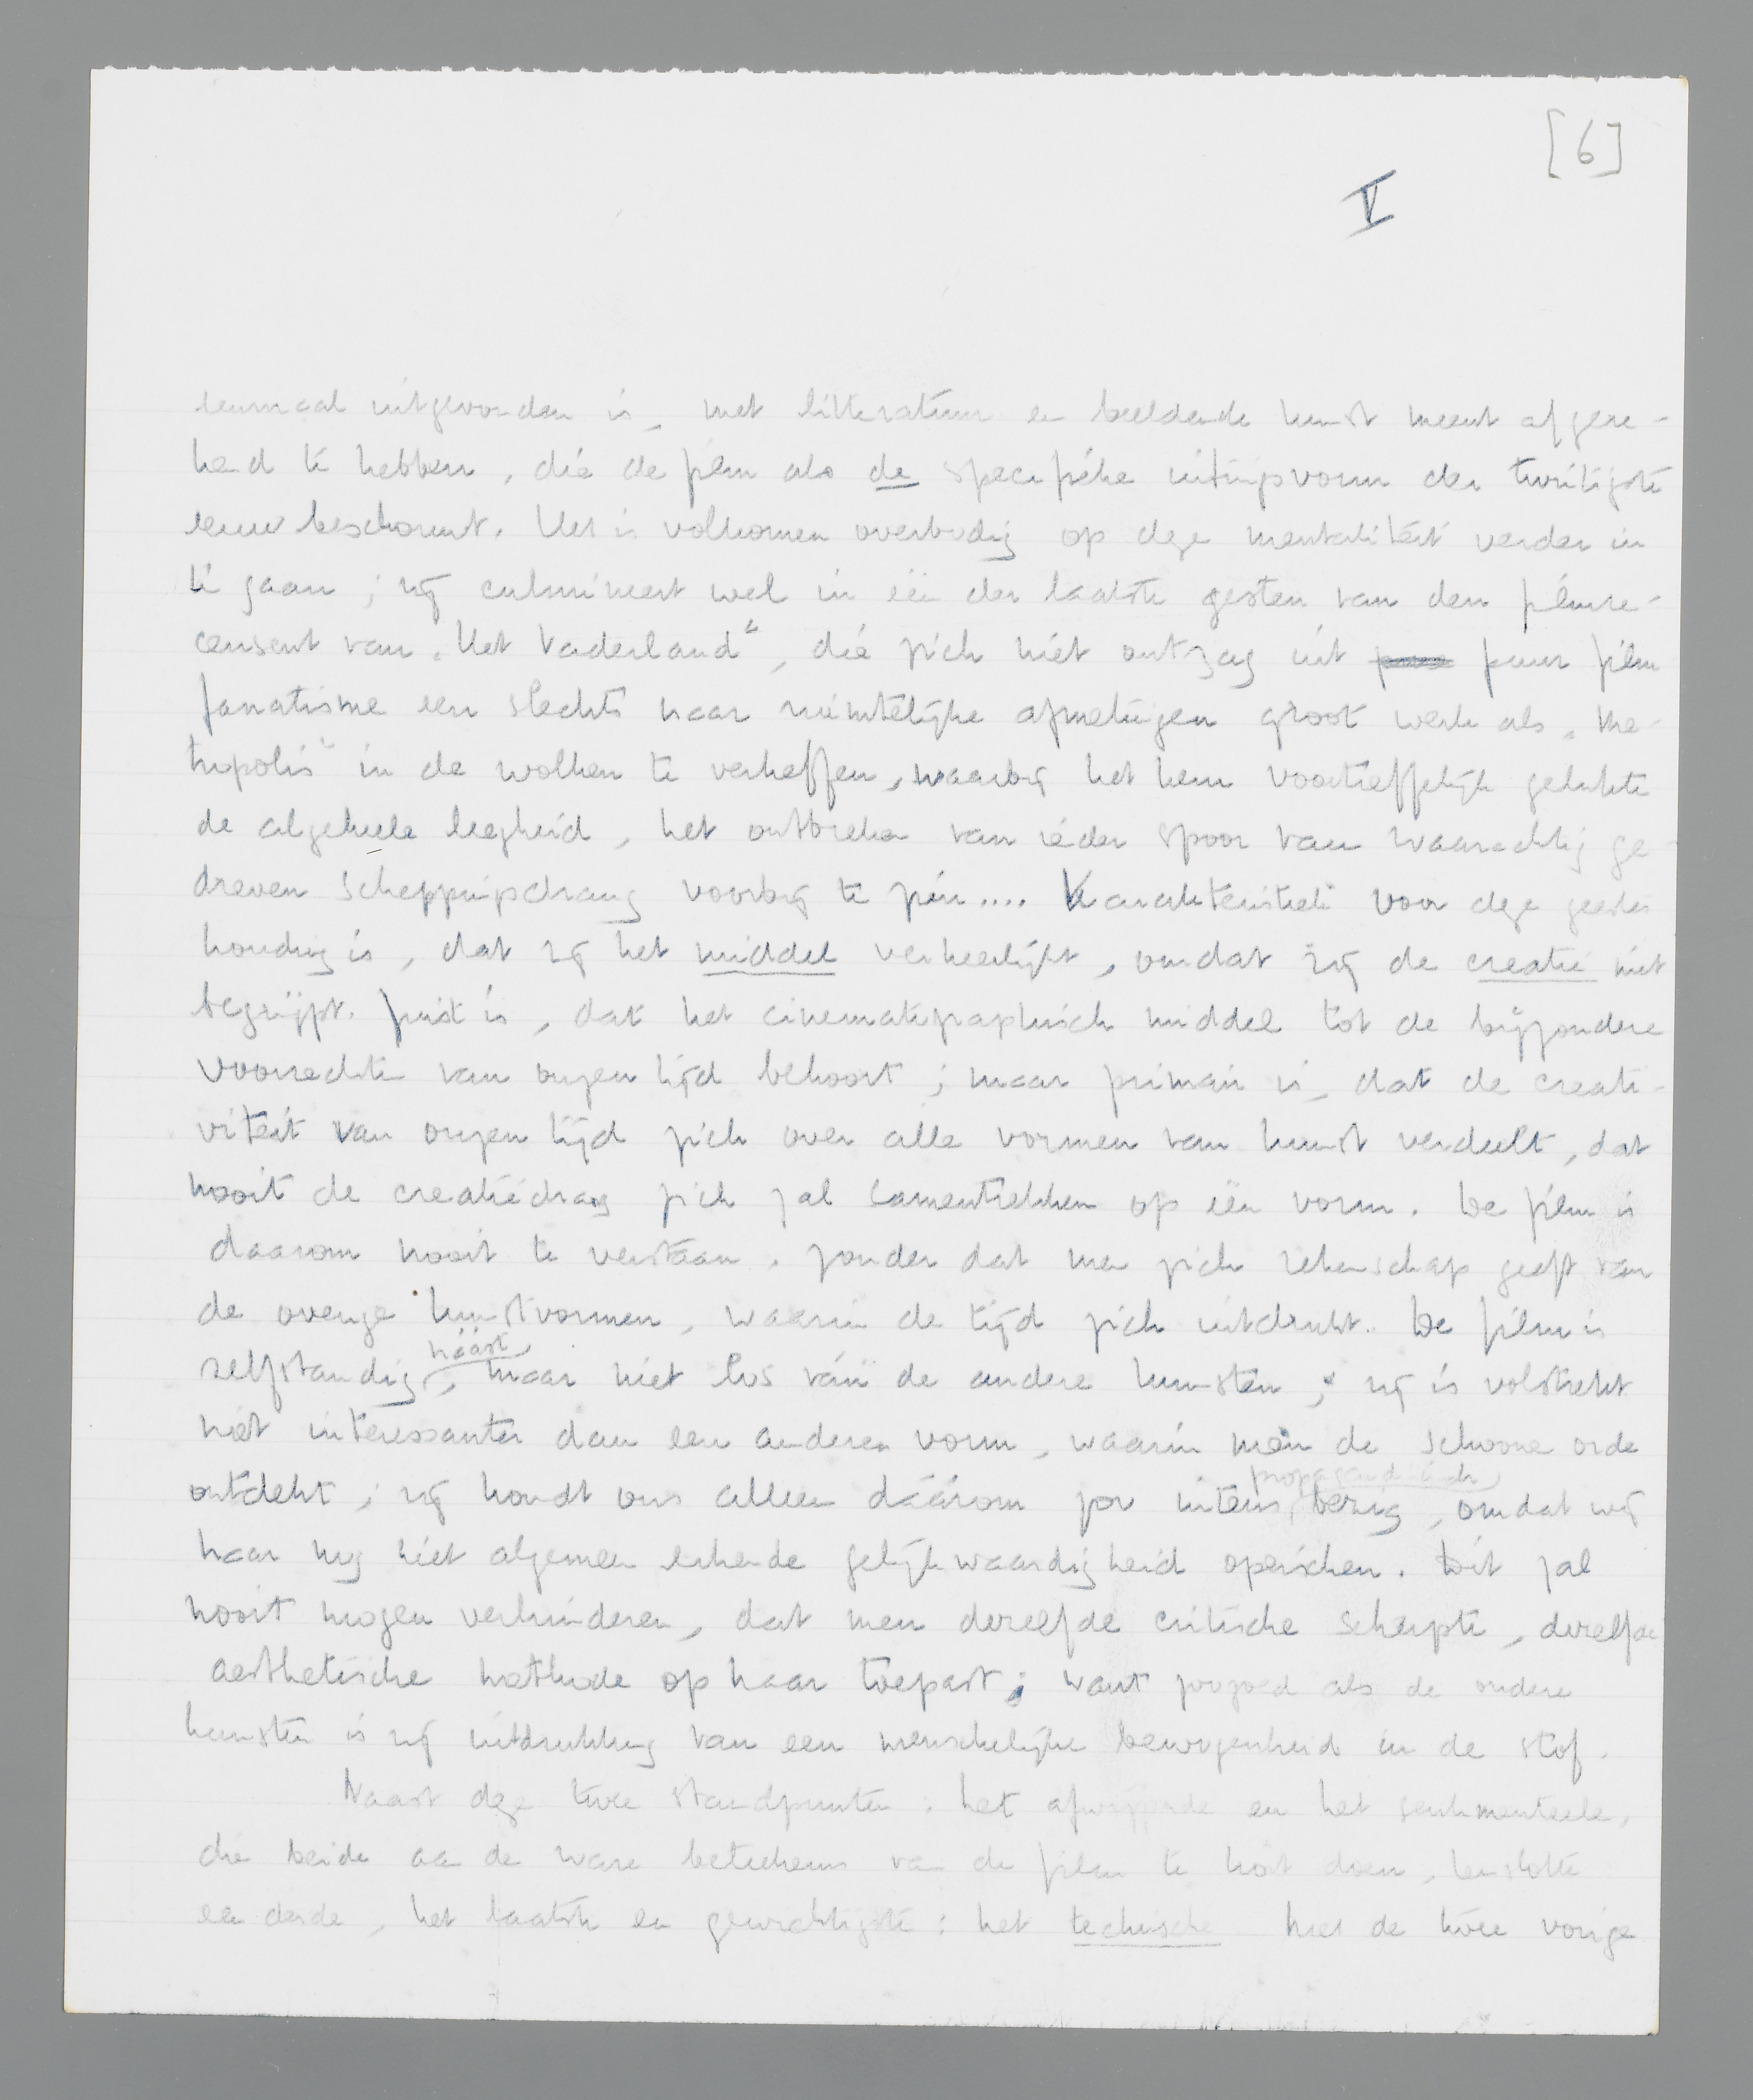 [6]
V
eenmaal uitgevonden is, met litteratuur en beeldende kunst meent afgere-
kend te hebben, die de film als de specifieke uitingsvorm der twintigste
eeuw beschouwt. Het is volkomen overbodig op deze mentaliteit verder in
te gaan; zij culmineert wel in één der laatste gesten van den filmre-
censent van „Het Vaderland”, die zich niet ontzag uit puur film
fanatisme een slechts naar ruimtelijke afmetingen groot werk als „Me-
tropolis” in de wolken te verheffen, waarbij het hem voortreffelijk gelukte
de algeheele leegheid, het ontbreken van ieder spoor van waarachtig ge-
dreven scheppingsdrang voorbij te zien.... Karakteristiek voor deze geestes
houding is, dat zij het middel verheerlijkt, omdat zij de creatie niet
begrijpt. Juist is, dat het cinematografisch middel tot de bijzondere
voorrechten van onzen tijd behoort; maar primair is, dat de creati-
viteit van onzen tijd zich over alle vormen van kunst verdeelt, dat
nooit de creatiedrang zich zal samentrekken op één vorm. De film is
daarom nooit te verstaan, zonder dat men zich rekenschap geeft van
de overige kunstvormen, waarin de tijd zich uitdrukt. De film is
zelfstandig náást, maar niet los ván de andere kunsten; zij is volstrekt
niet interessanter dan een anderen vorm, waarin men de schoone orde
ontdekt; zij houdt ons alleen dáárom zoo intens propagandistisch bezig, omdat wij
haar nog niet algemeen erkende gelijkwaardigheid opeischen. Dit zal
nooit mogen verhinderen, dat men dezelfde critische scherpte, dezelfde
aesthetische methode op haar toepast; want zoogoed als de andere
kunsten is zij uitdrukking van een menschelijke bewogenheid in de stof.
Naast deze twee standpunten: het afwijzende en het sentimenteele,
die beide aan de ware beteekenis van de film te kort doen, tenslotte
een derde, het laatste en gewichtigste: het technische Met de twee vorige